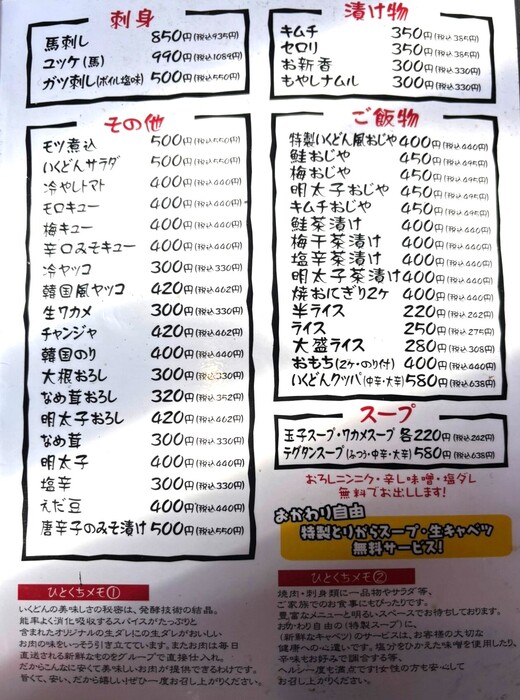 刺身
馬刺し 850円(税込935円)
ユッケ(馬) 990円(税込1089円)
ガツ刺し(ボイル塩味) 500円(税込550円)
その他
モツ煮込 500円(税込550円)
いくどんサラダ 500円(税込550円)
冷やしトマト 400円(税込440円)
モロキュー 400円(税込440円)
梅キュー 400円(税込440円)
辛口みそキュー 400円(税込440円)
冷ヤッコ 300円(税込330円)
韓国風ヤッコ 420円(税込462円)
生ワカメ 300円(税込330円)
チャンジャ 420円(税込462円)
韓国のり 400円(税込440円)
大根おろし 300円(税込330円)
なめ茸おろし 320円(税込352円)
明太子おろし 420円(税込462円)
なめ茸 300円(税込330円)
明太子 400円(税込440円)
塩辛 300円(税込330円)
えだ豆 400円(税込440円)
唐辛子のみそ漬け 500円(税込550円)
ひとくちメモ①
いくどんの美味しさの秘密は、発酵技術の結晶。
能率よく消化吸収するスパイスがたっぷりと
含まれたオリジナルの生ダレにこの生ダレがおいしい
お肉の味をいっそう引き立ています。またお肉は毎日
直送される新鮮なものをグループで直接仕入れ。
だからこんなに安くて美味しいお肉が提供できるわけです。
旨くて、安い、だから嬉しいぜひ一度お召し上がりください。
漬け物
キムチ 350円(税込385円)
セロリ 350円(税込385円)
お新香 300円(税込330円)
もやしナムル 300円(税込330円)
ご飯物
特製いくどん風おじや 400円(税込440円)
鮭おじや 450円(税込495円)
梅おじや 450円(税込495円)
明太子おじや 450円(税込495円)
キムチおじや 450円(税込495円)
鮭茶漬け 400円(税込440円)
梅干茶漬け 400円(税込440円)
塩辛茶漬け 400円(税込440円)
明太子茶漬け 400円(税込440円)
焼おにぎり2ヶ 400円(税込440円)
半ライス 220円(税込242円)
ライス 250円(税込275円)
大盛ライス 280円(税込308円)
おもち(2ヶ・のり付) 400円(税込440円)
いくどんクッパ(中辛・大辛) 580円(税込638円)
スープ
玉子スープ・ワカメスープ 各220円(税込242円)
テグタンスープ(みつう・中辛・大辛) 580円(税込638円)
おろしニンニク・辛し味噌・塩ダレ
無料でお出しします!
おかわり自由
特製とりがらスープ・生キャベツ
無料サービス!
ひとくちメモ②
焼肉・刺身類に一品物やサラダ等、
ご家族でのお食事にもぴったりです。
豊富なメニューと明るいスペースでお待ちしております。
おかわり自由の(特製スープ)に、
(新鮮なキャベツ)のサービスは、お客様の大切な
健康への心遣いです。塩分をひかえた味噌を使用したり、
辛味もお好みで調合する等、
ヘルシー度も満点です!女性の方も安心して
お召し上がりください。